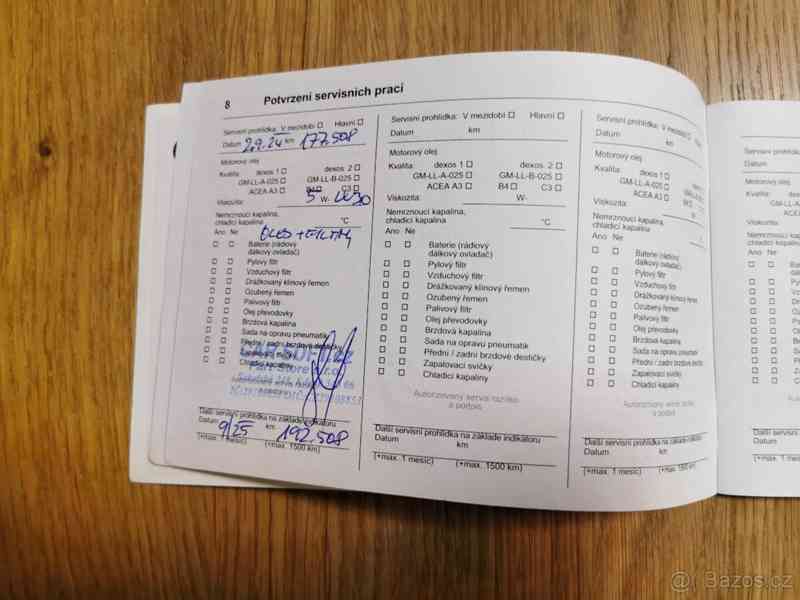 8 Potvrzení servisních prací
Servisní prohlídka: V mezidobí Hlavní
Datum 2.9.24 km 177.508
Motorový olej
Kvalita: dexos 1 dexos 2
GM-LL-A-025 GM-LL-B-025
ACEA A3 B4 C3
Viskozita: 5 W- 30
Nemrznoucí kapalina,
chladicí kapalina °C
Ano Ne OLEJ + FILTRY
Baterie (rádiový
dálkový ovladač)
Pylový filtr
Vzduchový filtr
Drážkovaný klínový řemen
Ozubený řemen
Palivový filtr
Olej převodovky
Brzdová kapalina
Sada na opravu pneumatik
Přední / zadní brzdové destičky
Zapalovací svíčky
Chladicí kapaliny
Další servisní prohlídka na základě indikátoru
Datum 9/25 km 192.508
(+max. 1 měsíc) (+max. 1500 km)
Servisní prohlídka: V mezidobí Hlavní
Datum km
Motorový olej
Kvalita: dexos 1 dexos 2
GM-LL-A-025 GM-LL-B-025
ACEA A3 B4 C3
Viskozita: W-
Nemrznoucí kapalina,
chladicí kapalina °C
Ano Ne
Baterie (rádiový
dálkový ovladač)
Pylový filtr
Vzduchový filtr
Drážkovaný klínový řemen
Ozubený řemen
Palivový filtr
Olej převodovky
Brzdová kapalina
Sada na opravu pneumatik
Přední / zadní brzdové destičky
Zapalovací svíčky
Chladicí kapaliny
Autorizovaný servis razítko
a podpis
Další servisní prohlídka na základě indikátoru
Datum km
(+max. 1 měsíc) (+max. 1500 km)
Servisní prohlídka: V mezidobí Hlavní
Datum km
Motorový olej
Kvalita: dexos 1 dexos 2
GM-LL-A-025 GM-LL-B-025
ACEA A3 B4 C3
Viskozita: W-
Nemrznoucí kapalina,
chladicí kapalina °C
Ano Ne
Baterie (rádiový
dálkový ovladač)
Pylový filtr
Vzduchový filtr
Drážkovaný klínový řemen
Ozubený řemen
Palivový filtr
Olej převodovky
Brzdová kapalina
Sada na opravu pneumatik
Přední / zadní brzdové destičky
Zapalovací svíčky
Chladicí kapaliny
Autorizovaný servis razítko
a podpis
Další servisní prohlídka na základě indikátoru
Datum km
(+max. 1 měsíc) (+max. 1500 km)
Servisní
Datum
Motorový
Kvalita:
Viskozita:
Nemrznoucí
chladicí
Ano Ne
Datum
(+max. 1
Bazos.cz